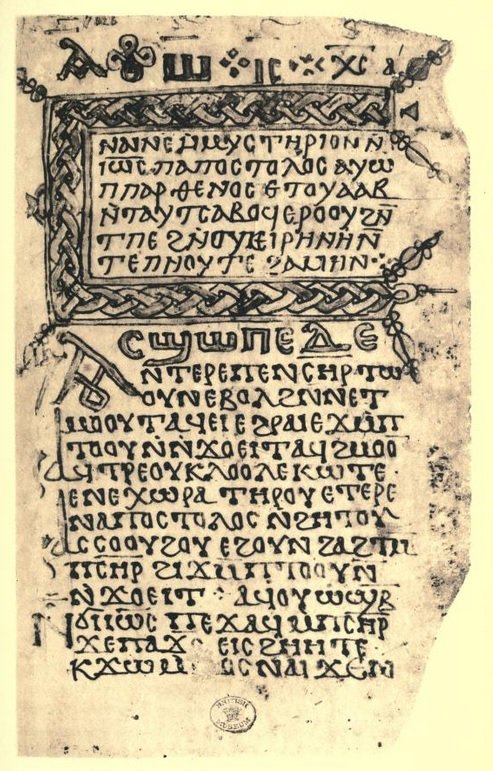 ⲁ ⲱ ⁘ ⲓⲥ ⁘ ⲭ
ⲛⲁⲓⲛⲉⲙ̄ⲙⲩⲥⲧⲏⲣⲓⲟⲛ ⲛ̄
ⲓⲱϩ̄ ⲡⲁⲡⲟⲥⲧⲟⲗⲟⲥ ⲁⲩⲱ
ⲡⲡⲁⲣⲑⲉⲛⲟⲥ ⲉⲧⲟⲩⲁⲁⲃ
ⲛ̄ⲧⲁⲩⲧⲥⲁⲃⲟϥⲉⲣⲟⲟⲩϩⲛ̄
ⲧⲡⲉ ϩⲛ̄ⲟⲩⲉⲓⲣⲏⲛⲏ ⲛ̄
ⲧⲉⲡⲛⲟⲩⲧⲉ ϩⲁⲙⲏⲛ
ⲁⲥϣⲱⲡⲉⲇⲉ
ⲛ̄ⲧⲉⲣⲉⲡⲉⲛⲥⲏⲣⲧⲱ
ⲟⲩⲛⲉⲃⲟⲗϩⲛ̄ⲛⲉⲧ
ⲙⲟⲟⲩⲧⲁϥⲉⲓⲉϩⲣⲁⲓⲉϫⲙ̄ⲡ
ⲧⲟⲟⲩⲛ̄ⲛϫⲟⲉⲓⲧⲁϥϩⲙⲟⲟ
ϥⲧⲣⲉⲟⲩⲕⲗⲟⲟⲗⲉⲕⲱⲧⲉ·
ⲉⲛⲉⲭⲱⲣⲁ ⲧⲏⲣⲟⲩⲉⲧⲉⲣⲉ
ⲛⲁⲡⲟⲥⲧⲟⲗⲟⲥ ⲛϩⲏⲧⲟⲩ
ⲁⲥⲥⲟⲟⲩϩⲟⲩ ⲉϩⲟⲩⲛϩⲁϩⲧⲙ̄
ⲡⲥⲏⲣ ϩⲓϫⲙ̄ⲡⲧⲟⲟⲩⲛ̄
ⲛϫⲟⲉⲓⲧ · ⲁϥⲟⲩⲱϣⲃ̄
ⲛϭⲓⲓⲱϩ̄ ⲡⲉϫⲁϥⲙ̄ⲡⲥⲏⲣ
ϫⲉⲡⲁϫ̄ · ⲉⲓⲥϩⲏⲏⲧⲉ·
ⲕϫⲱⲙ̄ ⲟⲥⲛⲁⲓϫⲉⲛ
BRITISH MUSEUM